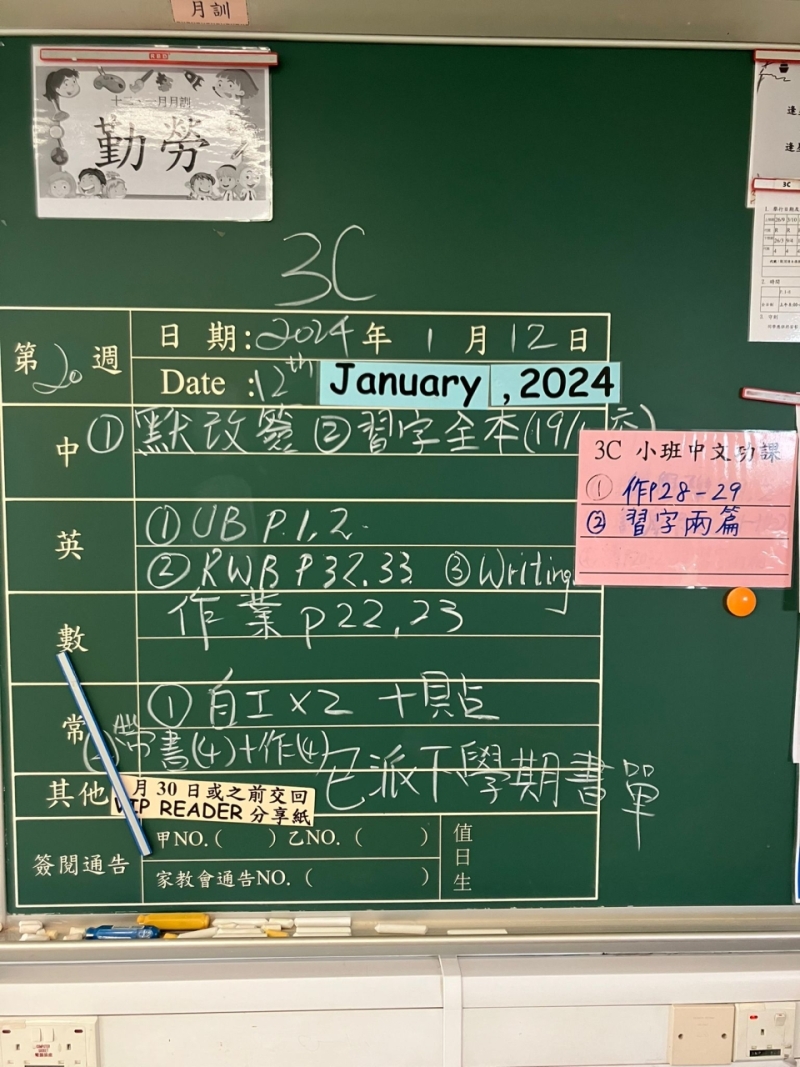 月訓
十二、一月月訓
勤勞
3C
第20週
日期:2024年1月12日
Date :12th January , 2024
中 ① 默改簽 ② 習字全本(19/1
3C 小班中文功課
① 作P28-29
② 習字兩篇
英 ① UB P.1,2.
② RWB P32.33. ③ Writing
數 作業p22,23
常 ① 自工×2
常書(4)+作(4)
其他 月30日或之前交回
VIP READER 分享紙
已派下學期書單
簽閱通告 甲NO.( ) 乙NO. ( )
家教會通告NO. ( )
值日生
3C